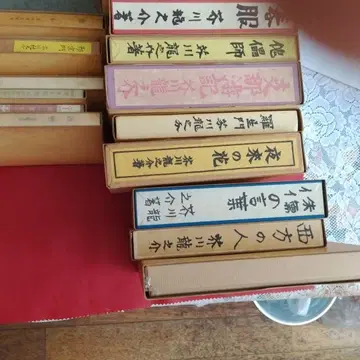 春服 芥川龍之介著
傀儡師 芥川龍之介作著
支那游記 芥川龍之介
羅生門 芥川龍之介
夜来の花 芥川龍之介著
侏儒の言葉 芥川龍之介著
西方の人 芥川龍之介